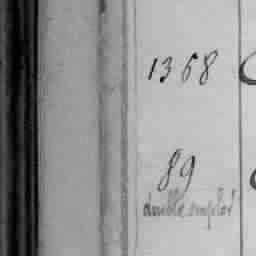 1368
89
double emploi